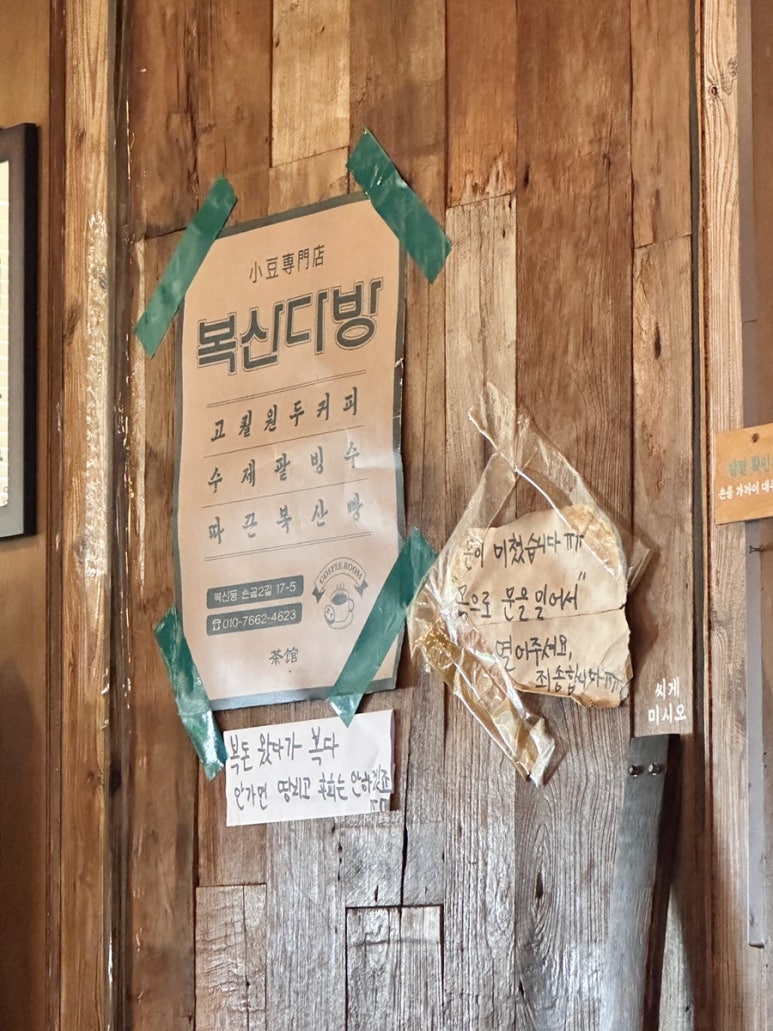 小豆専門店
복산다방
고퀄원두커피
수제팥빙수
따끈복산빵
복산동 손골2길 17-5
☎010-7662-4623
COFFEE ROOM
茶馆
복돈 왔다가 복다
안가면 땅치고 후회는 안하겠죠
문이 미쳤습니다ㅠㅠ
"몸으로 문을 밀어서"
열어주세요,
죄송합니다ㅠㅠ
씨게
미시오
손을 가까이